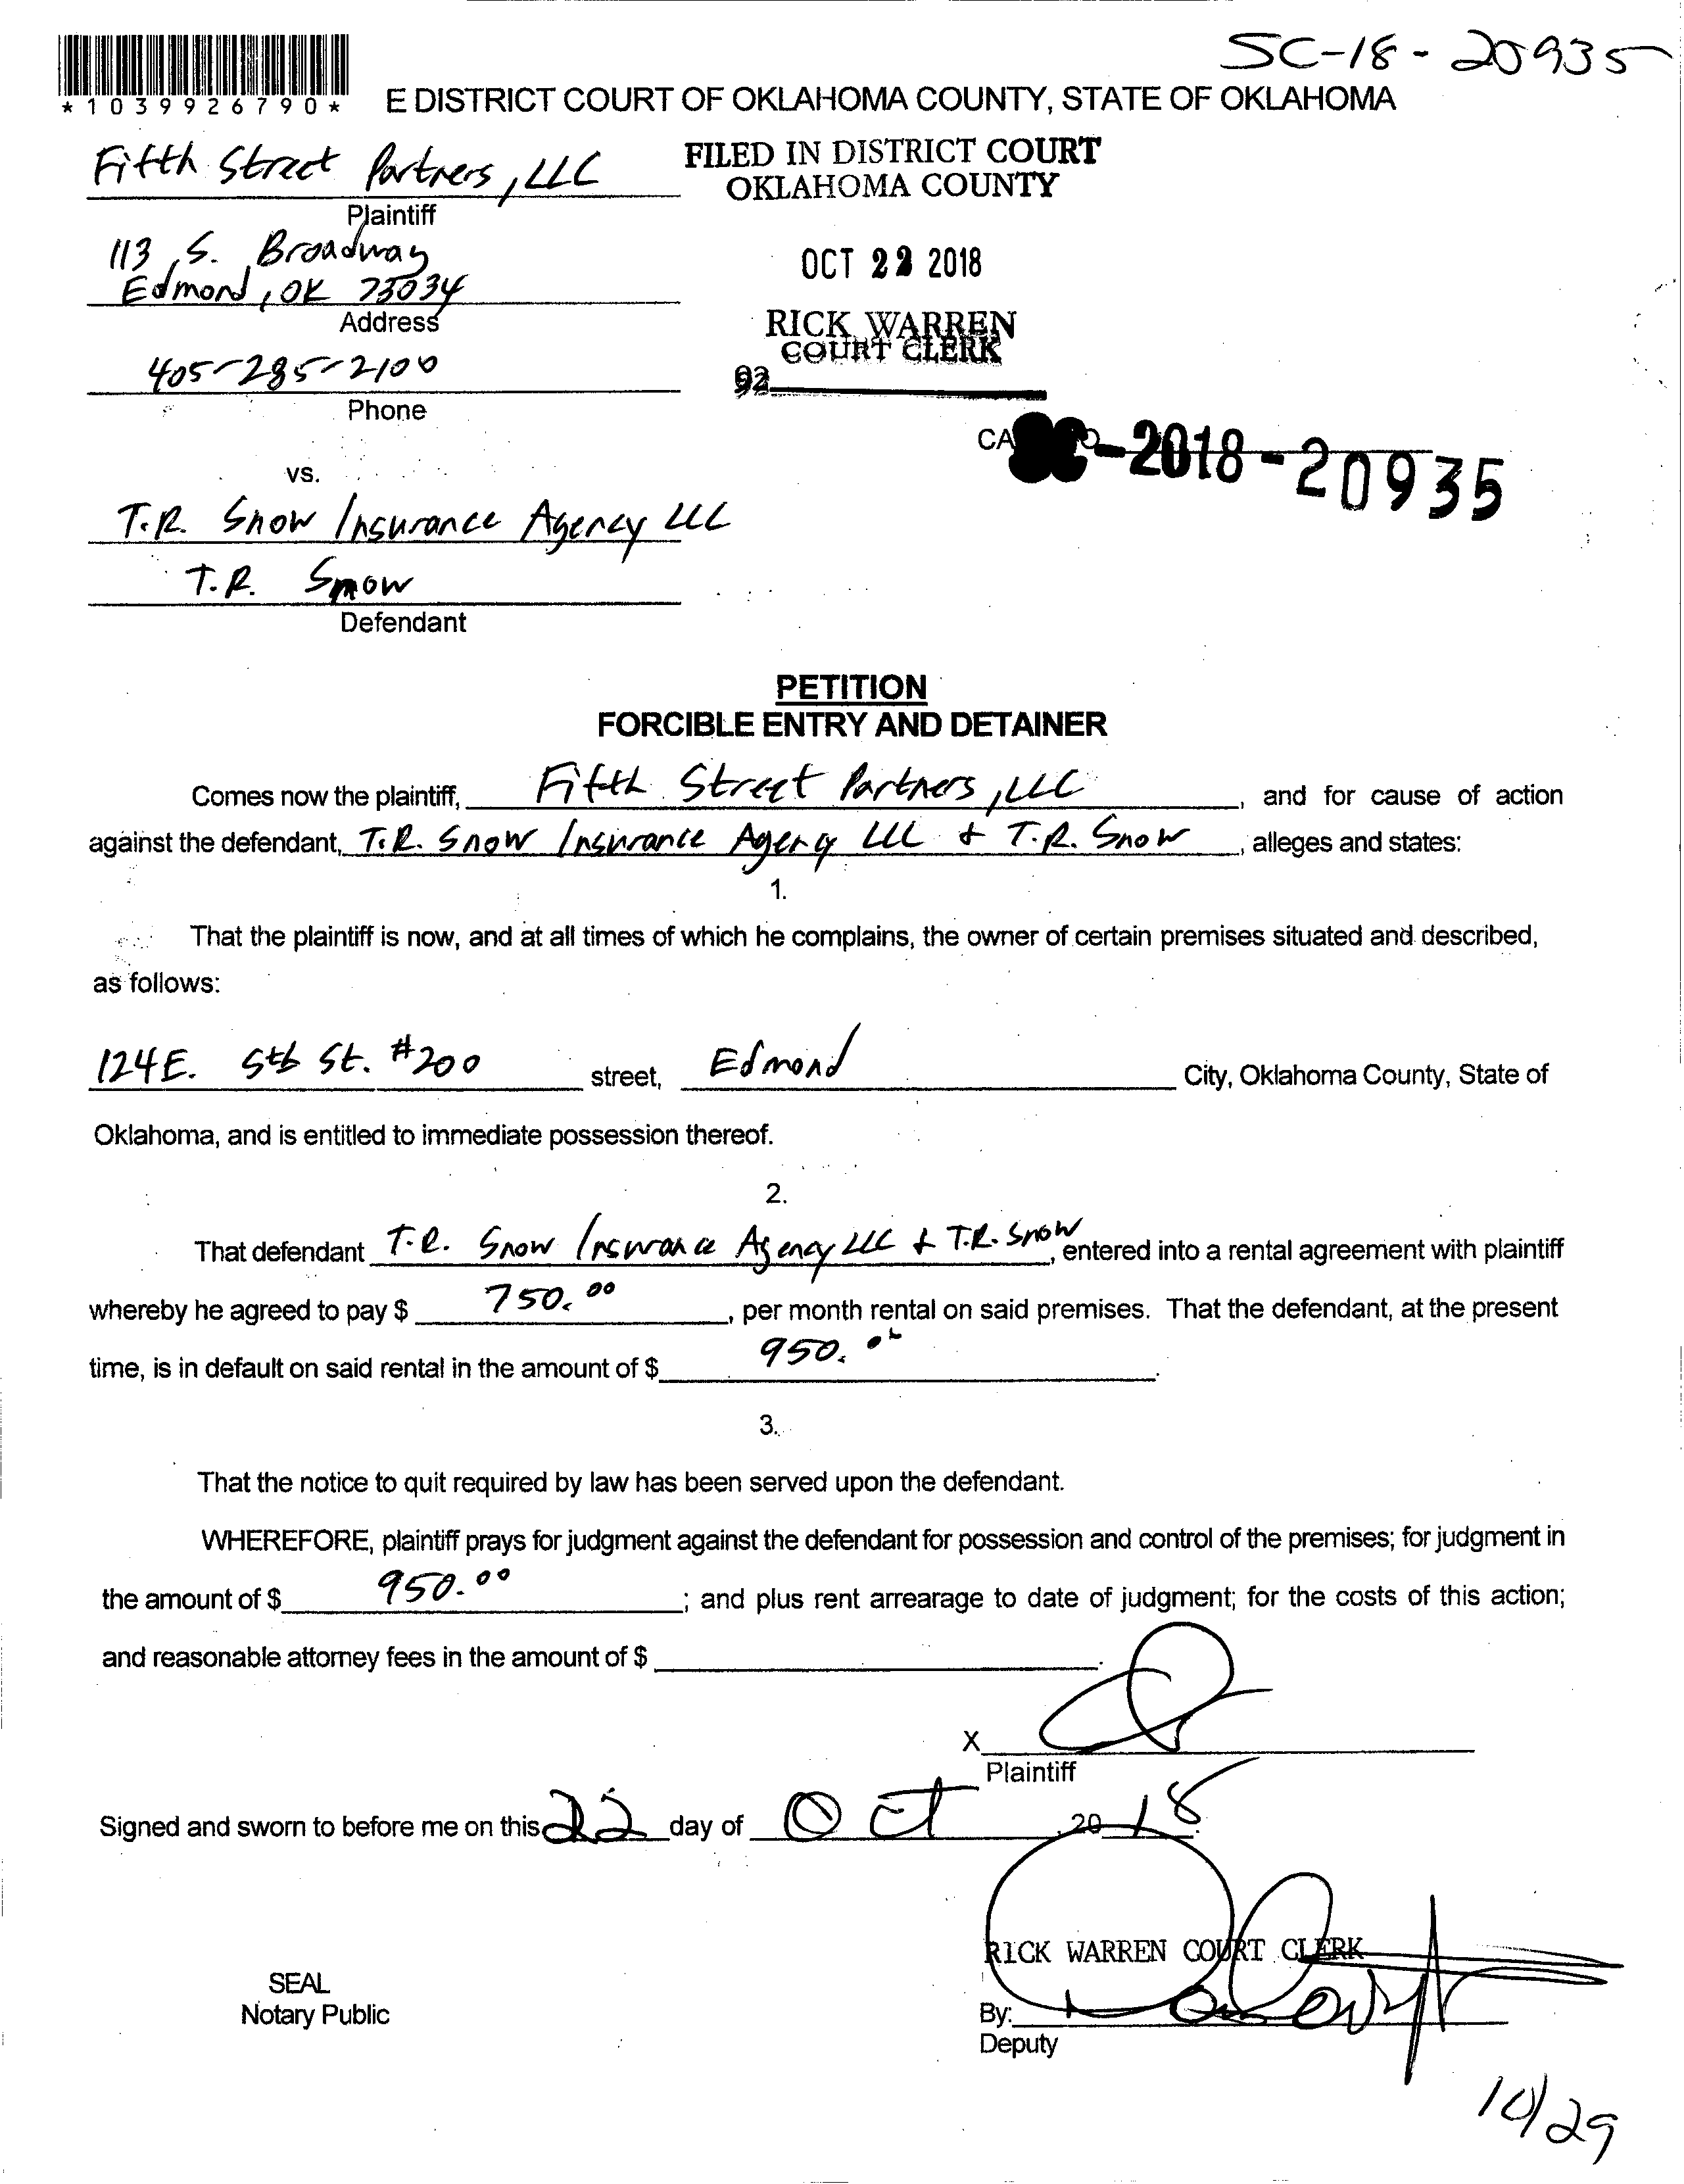 SC-18-20935
*1039926790*
E DISTRICT COURT OF OKLAHOMA COUNTY, STATE OF OKLAHOMA
Fifth Street Partners, LLC
Plaintiff
113 S. Broadway
Edmond, OK 73034
Address
405-285-2100
Phone
FILED IN DISTRICT COURT
OKLAHOMA COUNTY
OCT 22 2018
RICK WARREN
COURT CLERK
92
SC-2018-20935
vs.
T.R. Snow Insurance Agency LLC
T.R. Snow
Defendant
PETITION
FORCIBLE ENTRY AND DETAINER
Comes now the plaintiff, Fifth Street Partners, LLC, and for cause of action
against the defendant, T.R. Snow Insurance Agency LLC & T.R. Snow, alleges and states:
1.
That the plaintiff is now, and at all times of which he complains, the owner of certain premises situated and described,
as follows:
124 E. 5th St. #200 street, Edmond City, Oklahoma County, State of
Oklahoma, and is entitled to immediate possession thereof.
2.
That defendant T.R. Snow Insurance Agency LLC & T.R. Snow, entered into a rental agreement with plaintiff
whereby he agreed to pay $ 750.00, per month rental on said premises. That the defendant, at the present
time, is in default on said rental in the amount of $ 950.00.
3.
That the notice to quit required by law has been served upon the defendant.
WHEREFORE, plaintiff prays for judgment against the defendant for possession and control of the premises; for judgment in
the amount of $ 950.00; and plus rent arrearage to date of judgment; for the costs of this action;
and reasonable attorney fees in the amount of $ .
X
Plaintiff
Signed and sworn to before me on this 22 day of Oct, 2018.
RICK WARREN COURT CLERK
SEAL
Notary Public
By:
Deputy
10/29